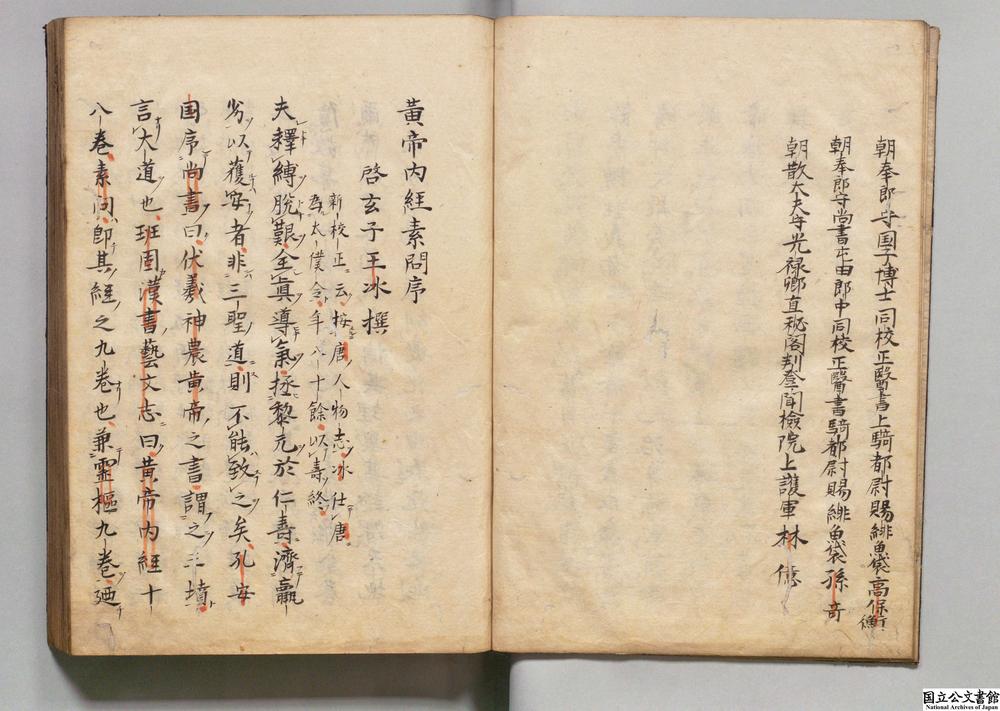 朝奉郎守国子博士同校正醫書上騎都尉賜緋魚袋高保衡
朝奉郎守尚書屯田郎中同校正醫書騎都尉賜緋魚袋孫奇
朝散大夫守光禄卿直秘閣判登聞檢院上護軍林億
黄帝内經素問序
啓玄子王冰撰
新校正云按唐人物志冰仕唐
為太僕令年八十餘以壽終
夫釋縛脱艱全真導氣拯黎元於仁壽濟羸
劣以獲安者非三聖道則不能致之矣孔安
国序尚書曰伏羲神農黄帝之書謂之三墳
言大道也班固漢書藝文志曰黄帝内經十
八巻素問即其經之九巻也兼靈樞九巻廼
国立公文書館
National Archives of Japan